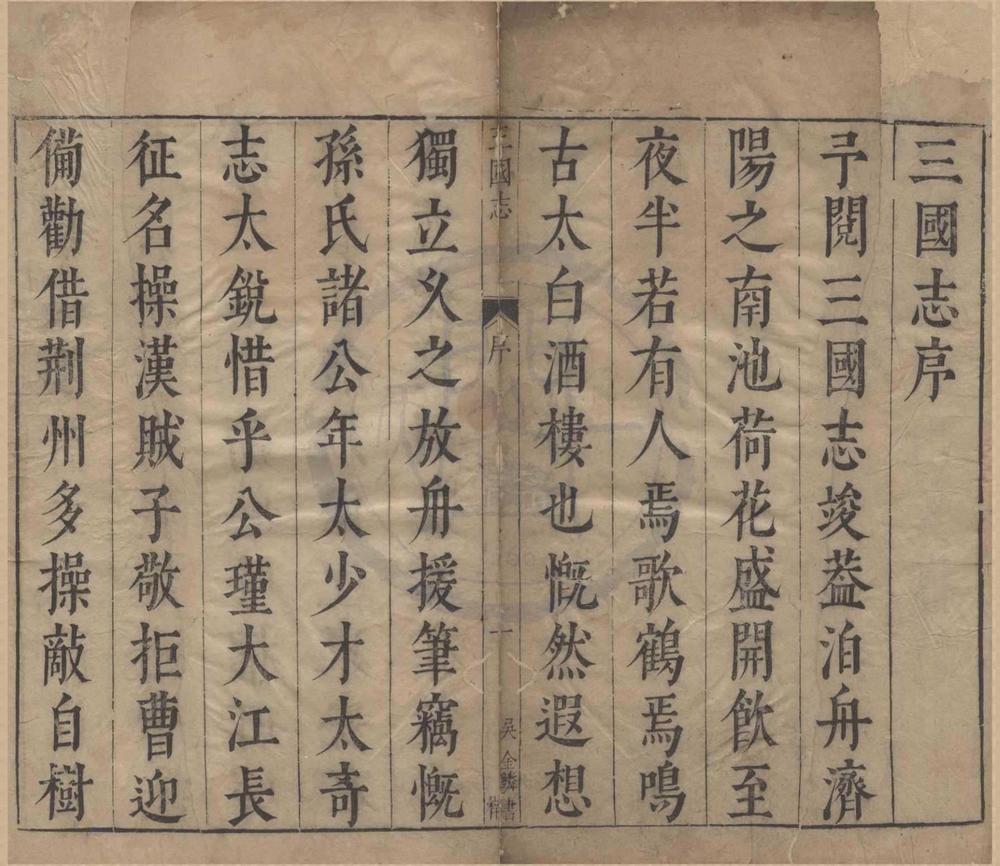 三國志序
予閱三國志竣葢泊舟濟
陽之南池荷花盛開飲至
夜半若有人焉歌鶴焉鳴
古太白酒樓也慨然遐想
三國志 序 一 吳金麟書
獨立久之放舟援筆竊慨
孫氏諸公年太少才太奇
志太銳惜乎公瑾大江長
征名操漢賊子敬拒曹迎
備勸借荆州多操敵自樹